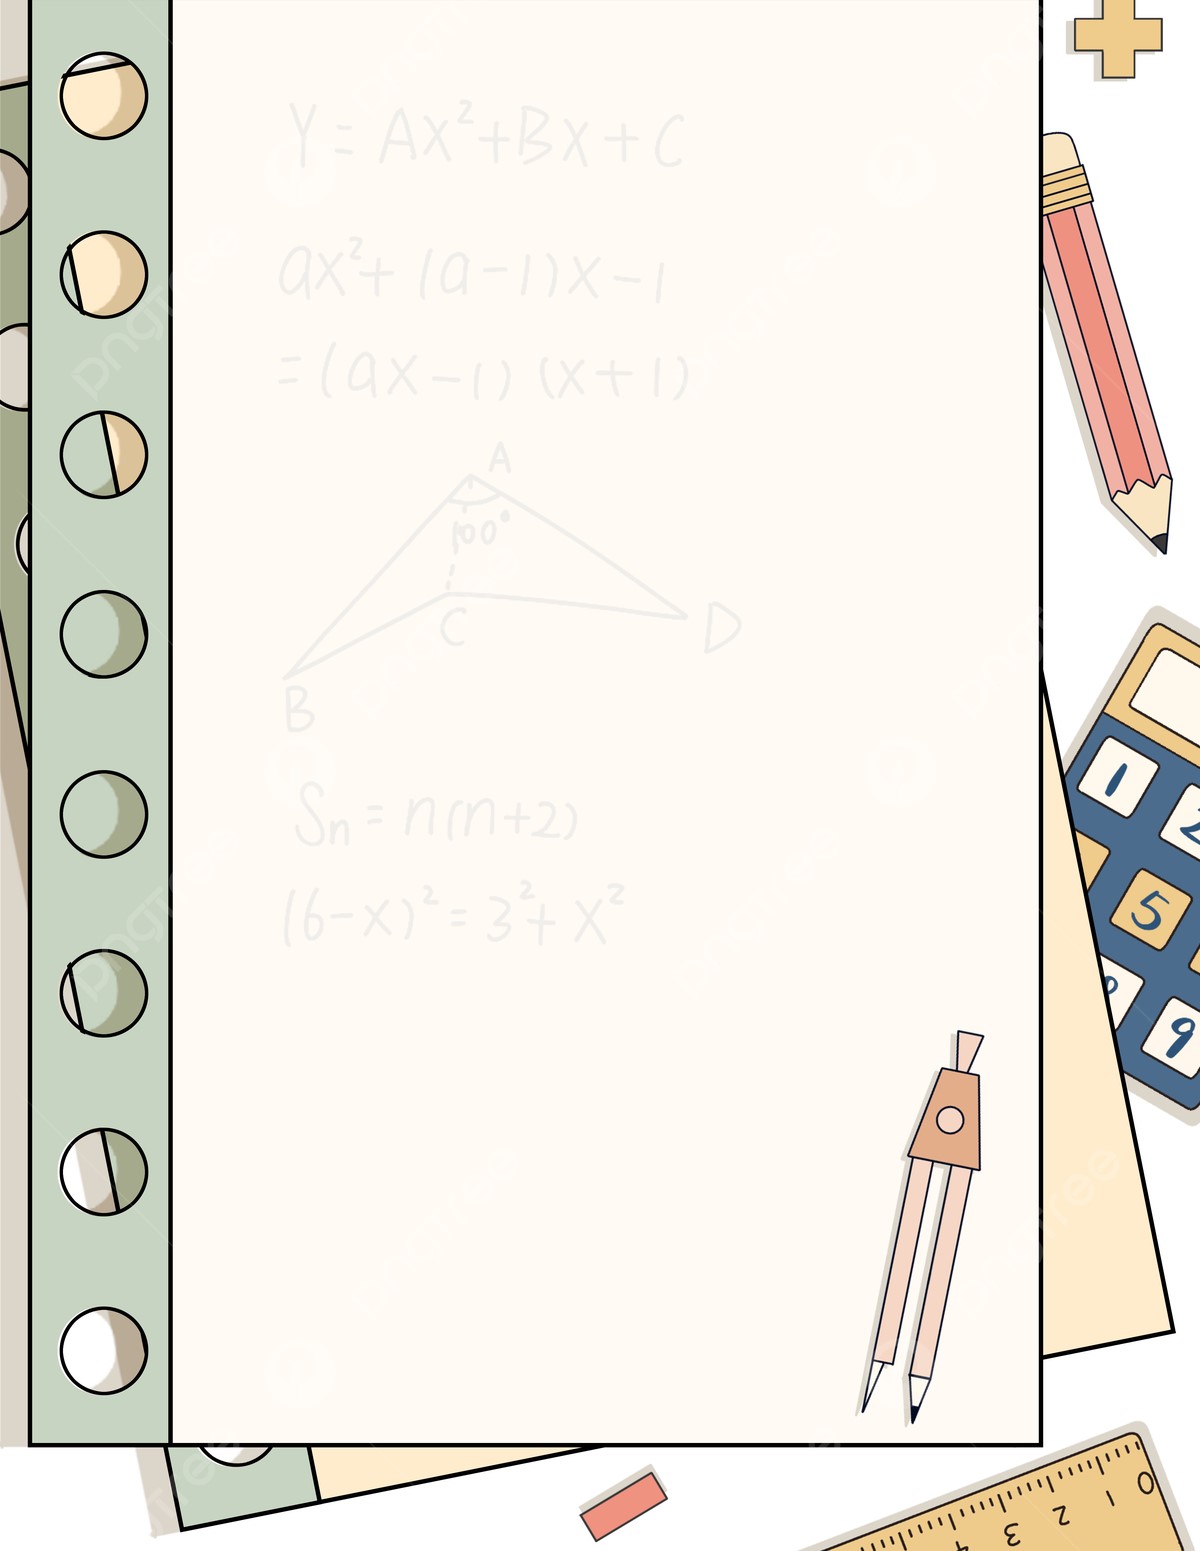 Y = AX²+BX+C
ax²+ (a-1)x-1
=(ax-1) (x+1)
A
100°
C
D
B
Sn = n(n+2)
(6-x)² = 3²+ x²
1
2
5
9
0
1
2
3
4
pngtree